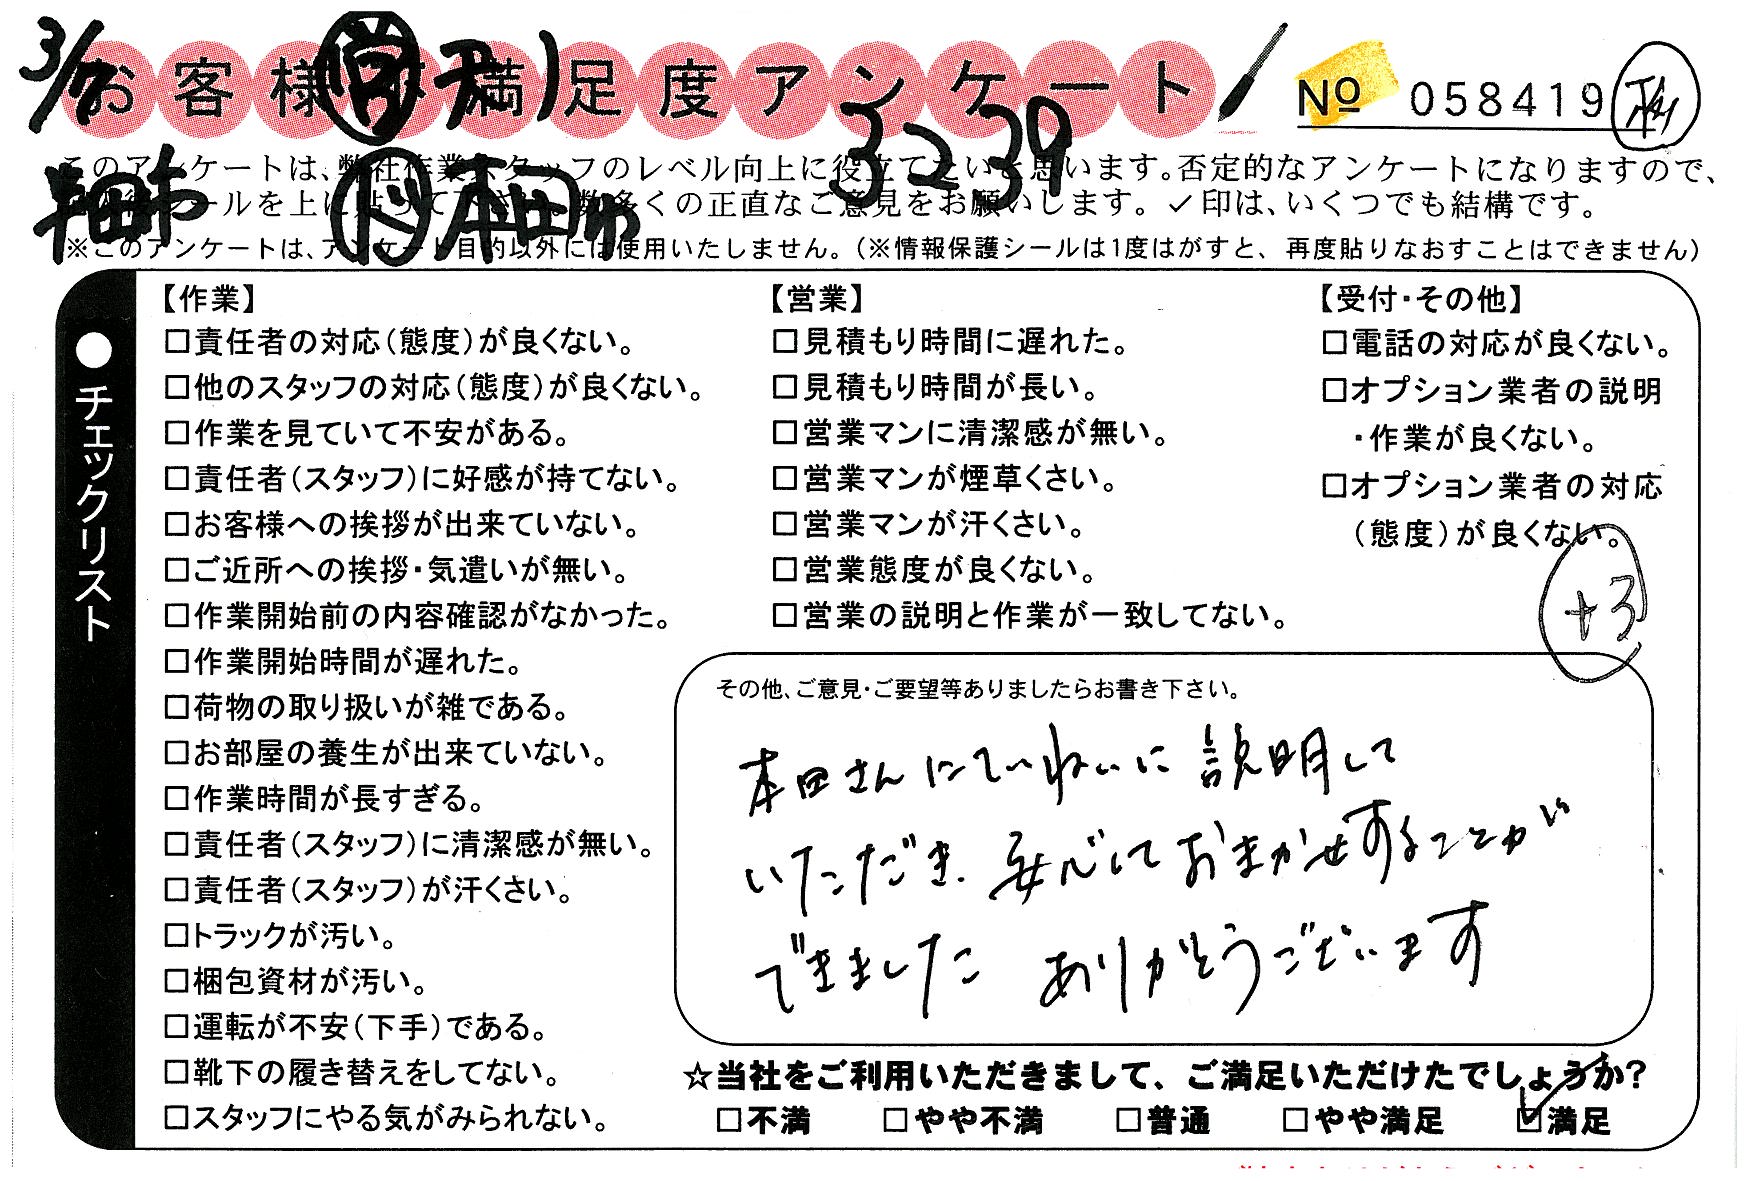 お客様不満足度アンケート
№ 058419
3239
このアンケートは、弊社作業スタッフのレベル向上に役立てたいと思います。否定的なアンケートになりますので、
シールを上に貼って下さい。数多くの正直なご意見をお願いします。✓印は、いくつでも結構です。
本田
※このアンケートは、アンケート目的以外には使用いたしません。(※情報保護シールは1度はがすと、再度貼りなおすことはできません)
●チェックリスト
【作業】
□責任者の対応(態度)が良くない。
□他のスタッフの対応(態度)が良くない。
□作業を見ていて不安がある。
□責任者(スタッフ)に好感が持てない。
□お客様への挨拶が出来ていない。
□ご近所への挨拶・気遣いが無い。
□作業開始前の内容確認がなかった。
□作業開始時間が遅れた。
□荷物の取り扱いが雑である。
□お部屋の養生が出来ていない。
□作業時間が長すぎる。
□責任者(スタッフ)に清潔感が無い。
□責任者(スタッフ)が汗くさい。
□トラックが汚い。
□梱包資材が汚い。
□運転が不安(下手)である。
□靴下の履き替えをしてない。
□スタッフにやる気がみられない。
【営業】
□見積もり時間に遅れた。
□見積もり時間が長い。
□営業マンに清潔感が無い。
□営業マンが煙草くさい。
□営業マンが汗くさい。
□営業態度が良くない。
□営業の説明と作業が一致してない。
【受付・その他】
□電話の対応が良くない。
□オプション業者の説明
・作業が良くない。
□オプション業者の対応
(態度)が良くない。
+3
その他、ご意見・ご要望等ありましたらお書き下さい。
本田さんにていねいに説明して
いただき、安心しておまかせすることが
できました ありがとうございます
☆当社をご利用いただきまして、ご満足いただけたでしょうか?
□不満 □やや不満 □普通 □やや満足 ☑満足